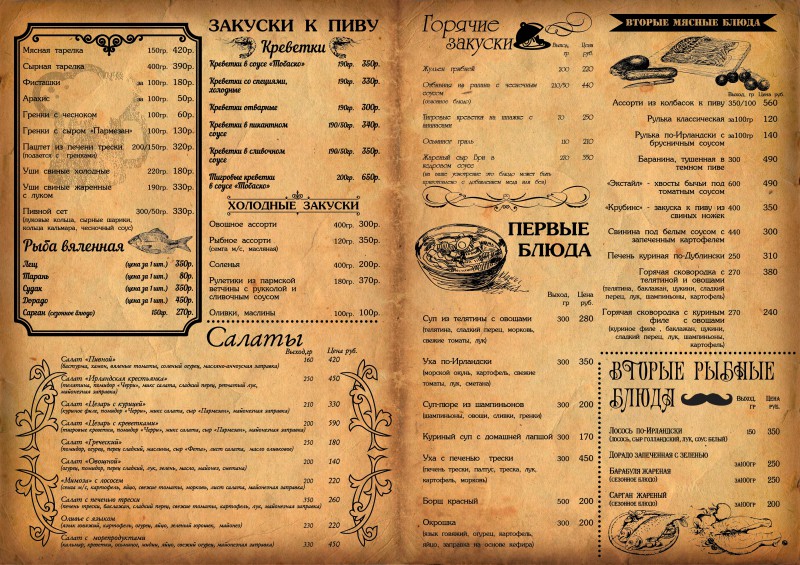 ЗАКУСКИ К ПИВУ
Мясная тарелка 150гр. 420р.
Сырная тарелка 400гр. 390р.
Фисташки за 100гр. 180р.
Арахис за 100гр. 50р.
Гренки с чесноком 100гр. 60р.
Гренки с сыром «Пармезан» 100гр. 130р.
Паштет из печени трески 200/150гр. 320р.
(подается с гренками)
Уши свиные холодные 220гр. 180р.
Уши свиные жаренные 190гр. 330р.
с луком
Пивной сет 300/50гр. 330р.
(луковые кольца, сырные шарики,
кольца кальмара, чесночный соус)
Рыба вяленная
Лещ (цена за 1 шт.) 350р.
Тарань (цена за 1 шт.) 80р.
Судак (цена за 1 шт.) 350р.
Дорадо (цена за 1 шт.) 450р.
Сарган (сезонное блюдо) 150гр. 270р.
Креветки
Креветки в соусе «Тобаско» 190р. 350р.
Креветки со специями, 190гр. 330р.
холодные
Креветки отварные 190гр. 300р.
Креветки в пикантном 190/50гр. 340р.
соусе
Креветки в сливочном 190/50гр. 350р.
соусе
Тигровые креветки 200гр. 650р.
в соусе «Тобаско»
ХОЛОДНЫЕ ЗАКУСКИ
Овощное ассорти 400гр. 300р.
Рыбное ассорти 120гр. 350р.
(семга м/с, масляная)
Соленья 400гр. 200р.
Рулетики из пармской 180гр. 370р.
ветчины с рукколой и
сливочным соусом
Оливки, маслины 100гр. 100р.
Салаты
Выход,гр Цена руб.
Салат «Пивной» 160 420
(бастурма, хамон, вяленые томаты, соленый огурец, маслянно-анчоусная заправка)
Салат «Ирландская крестьянка» 250 450
(телятина, помидор «Черри», микс салата, сладкий перец, репчатый лук,
майонезная заправка)
Салат «Цезарь с курицей» 210 330
(куриное филе, помидор «Черри», микс салата, сыр «Пармезан», майонезная заправка)
Салат «Цезарь с креветками» 200 590
(тигровые креветки, помидор «Черри», микс салата, сыр «Пармезан», майонезная заправка)
Салат «Греческий» 250 180
(помидор, огурец, перец сладкий, маслины, сыр «Фета», лист салата, масло оливковое)
Салат «Овощной» 200 140
(огурец, помидор, перец сладкий, лук, зелень, масло, майонез, сметана)
«Мимоза» с лососем 200 220
(стейк м/с, картофель, яйцо, свежие томаты, морковь, лист салата, майонезная заправка)
Салат с печенью трески 350 260
(печень трески, баклажан, сладкий перец, свежие томаты, картофель, лук, майонезная заправка)
Оливье с языком 230 220
(язык говяжий, картофель, огурец, яйцо, зеленый горошек, майонез)
Салат с морепродуктами 330 450
Горячие
закуски
Выход, гр Цена руб.
Жульен грибной 100 220
с чесночным 210/50 440
соусом
(сезонное блюдо)
Тигровые креветки на шпажке с 10 210
ананасами
Осьминог гриль 110 210
Жареный сыр Бри в 120 350
кедровом соусе
ПЕРВЫЕ
БЛЮДА
Выход, гр Цена руб.
Суп из телятины с овощами 300 280
(телятина, сладкий перец, морковь,
свежие томаты, лук)
Уха по-Ирландски 300 350
(морской окунь, картофель, свежие
томаты, лук, сметана)
Суп-пюре из шампиньонов 300 200
(шампиньоны, овощи, сливки, гренки)
Куриный суп с домашней лапшой 300 170
Уха с печенью трески 300 450
(печень трески, палтус, треска, лук,
картофель, морковь)
Борщ красный 500 200
Окрошка 300 200
(язык говяжий, огурец, картофель,
яйцо, заправка на основе кефира)
ВТОРЫЕ МЯСНЫЕ БЛЮДА
Выход, гр Цена руб.
Ассорти из колбасок к пиву 350/100 560
Рулька классическая за100гр 120
Рулька по-Ирландски с за100гр 140
брусничным соусом
Баранина, тушенная в 300 490
темном пиве
«Экстайл» - хвосты бычьи под 600 490
томатным соусом
«Крубинс» - закуска к пиву из 400 350
свиных ножек
Свинина под белым соусом с 440 300
запеченным картофелем
Печень куриная по-Дублински 250 310
Горячая сковородка с 270 380
телятиной и овощами
(телятина, баклажан, цукини, сладкий
перец, лук, шампиньоны, картофель)
Горячая сковородка с куриным 270 240
филе с овощами
(куриное филе , баклажан, цукини,
сладкий перец, лук, шампиньоны,
картофель)
ВТОРЫЕ РЫБНЫЕ
БЛЮДА
Выход, гр Цена руб.
Лосось по-Ирландски 150 350
(лосось, сыр голландский, лук, соус белый)
Дорадо запеченная с зеленью
за100гр 250
Барабуля жареная
(сезонное блюдо) за100гр 250
Сарган жареный
(сезонное блюдо) за100гр 200